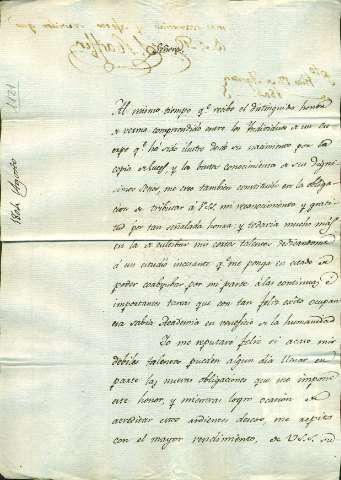 Señores
1121
1804 Agosto
Al mismo tiempo q.e recibo el distinguido honor
de verme comprendido entre los Individuos de un Cuer-
po q.e há sido ilustre desde su nacimiento por la
copia de luces, y los brutos conocimientos de sus dignı-
simos Socios, me creo tambien constituido en la obliga-
cion de tributar á V.SS. mi reconocimiento y grati-
tud por tan señalada honra; y todavia mucho más
en la de cultibar mis cortos talentos dedicandome
á un estudio incesante q.e me ponga en estado de
poder coadyubar por mi parte á las continuas, é
importantes tareas que con tan feliz exito ocupan
esa sabia Academia en veneficio de la humanidad
Yo me reputaré feliz si acaso mis
debiles talentos pueden algun dia llenar en
parte las nuevas obligaciones que me impone
este honor, y mientras logro ocasion de
acreditar estos ardientes deseos, me repito
con el mayor rendimiento, de V.SS. su